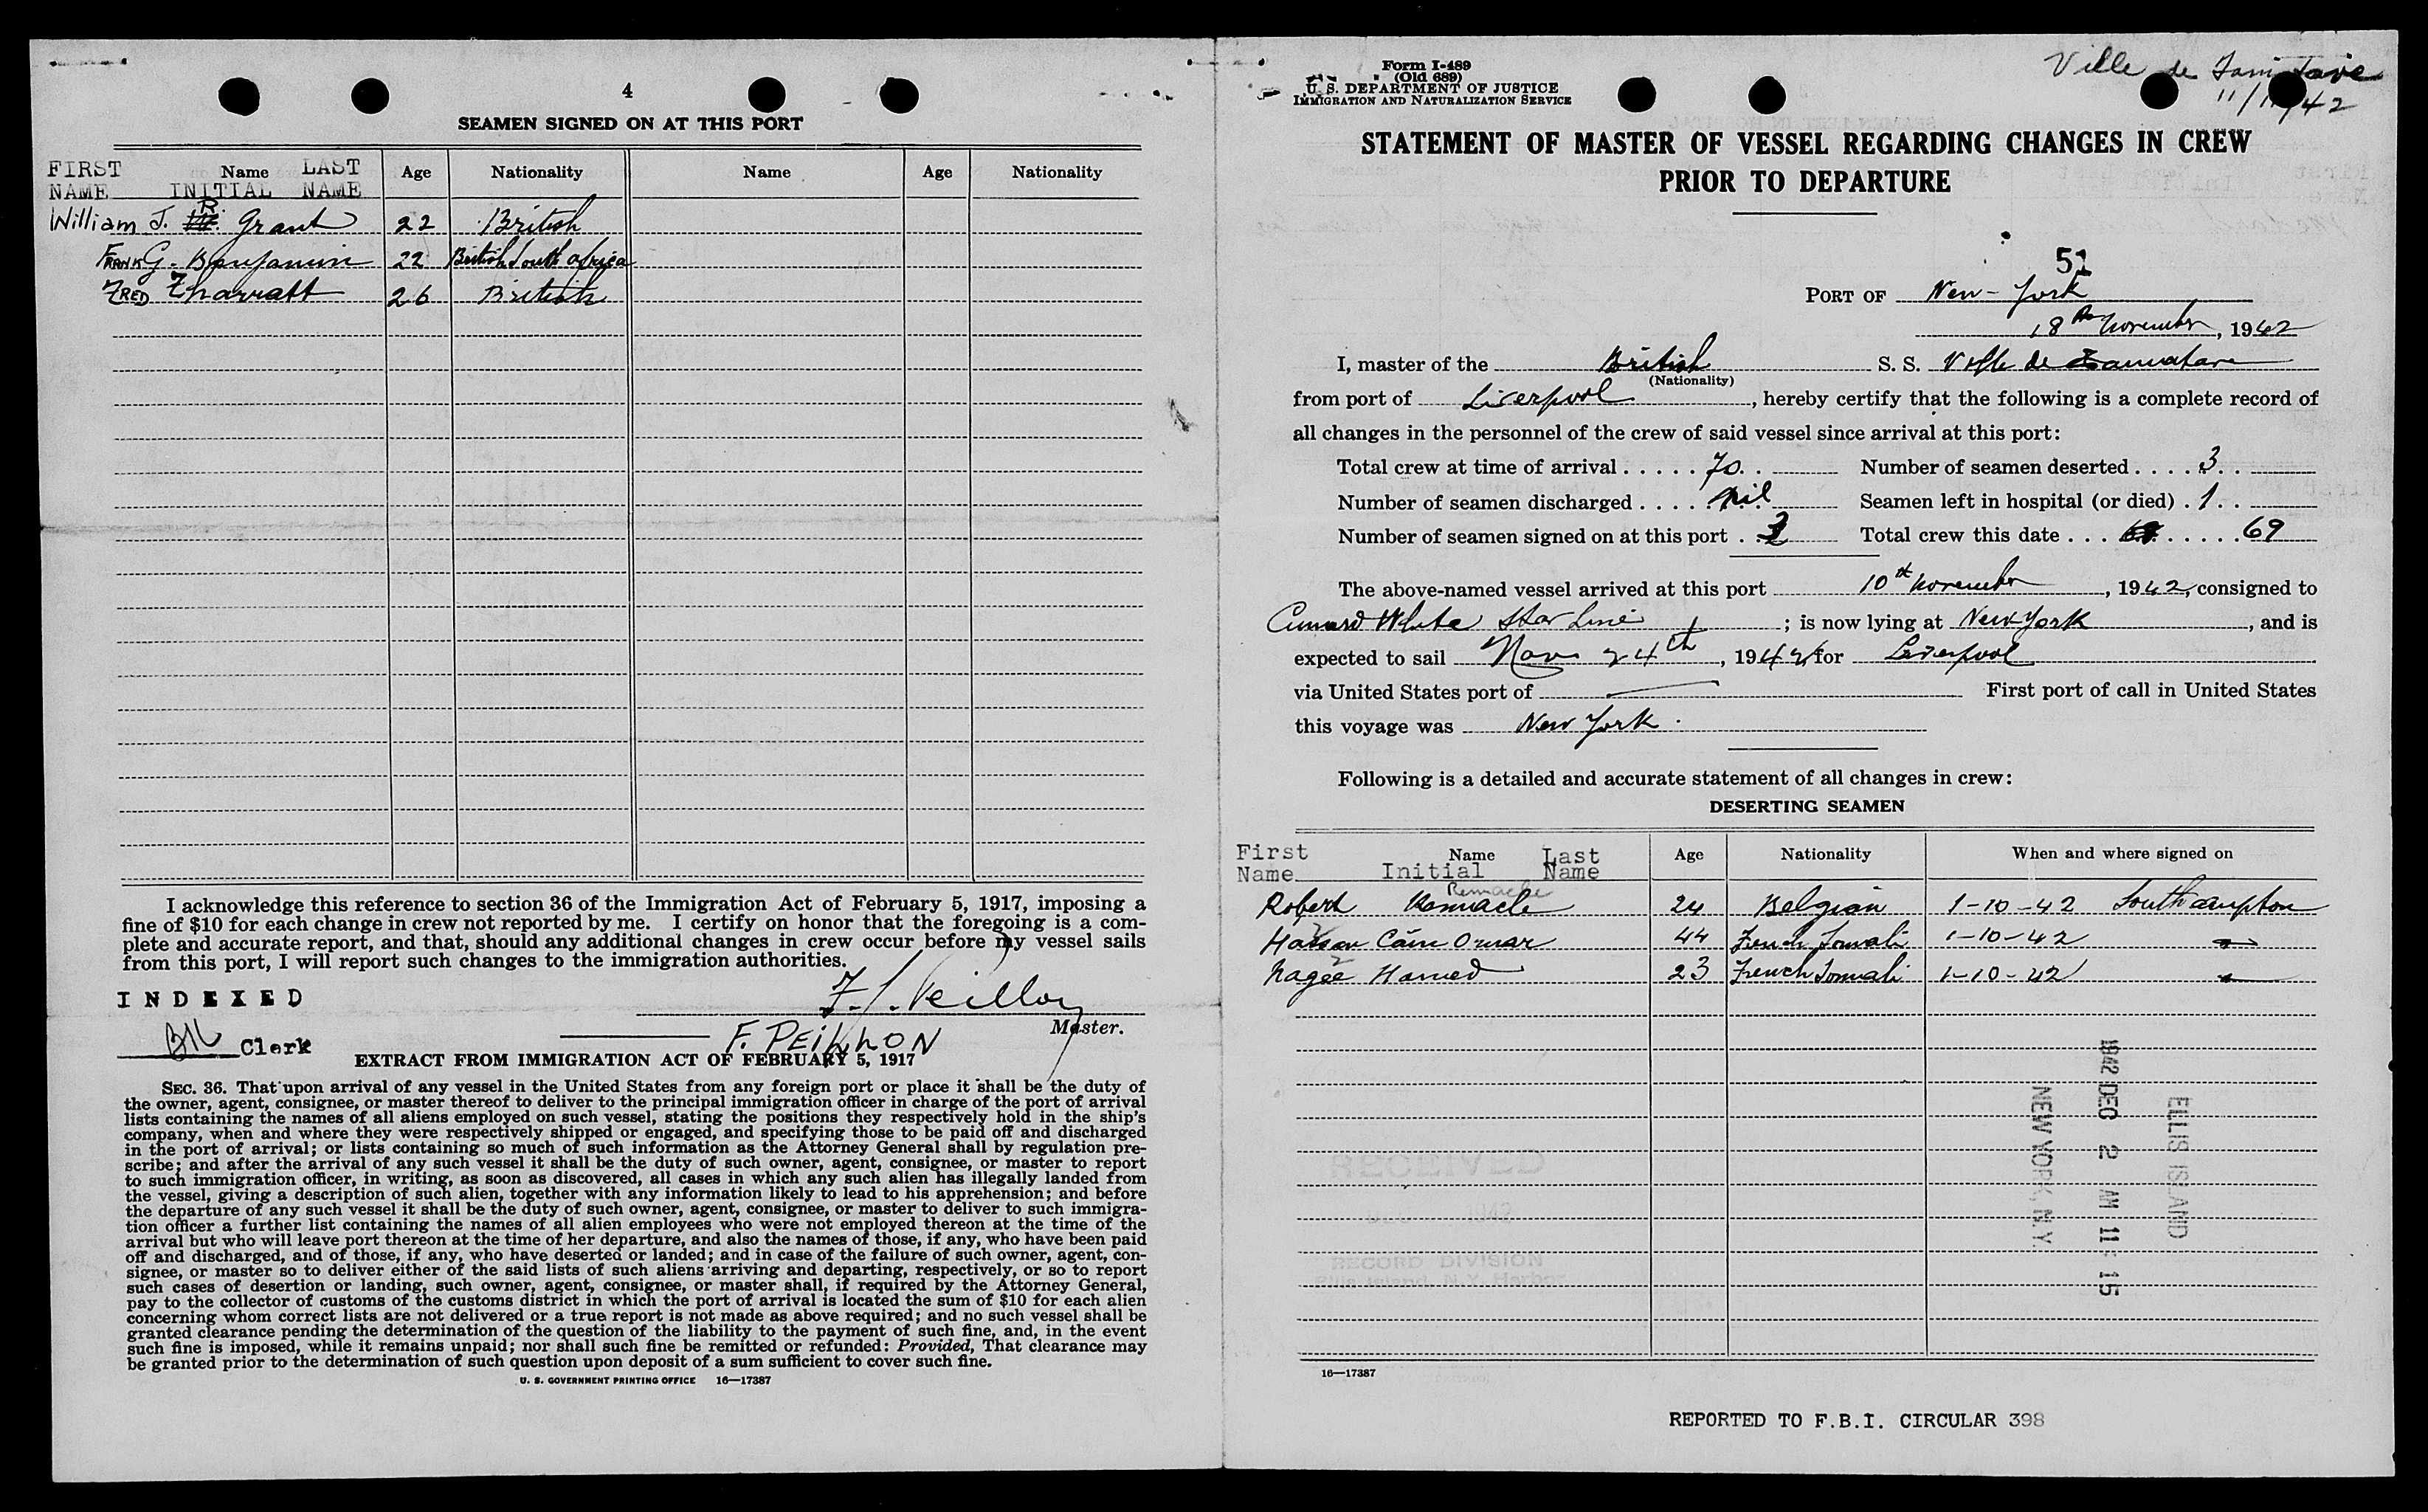 4
SEAMEN SIGNED ON AT THIS PORT
FIRST NAME Name INITIAL LAST NAME Age Nationality Name Age Nationality
William J. R. Grant 22 British
FRANK G. Benjamin 22 British South Africa
FRED Tharratt 26 British
I acknowledge this reference to section 36 of the Immigration Act of February 5, 1917, imposing a
fine of $10 for each change in crew not reported by me. I certify on honor that the foregoing is a com-
plete and accurate report, and that, should any additional changes in crew occur before my vessel sails
from this port, I will report such changes to the immigration authorities.
INDEXED
Clerk
F. PEILLON
Master.
EXTRACT FROM IMMIGRATION ACT OF FEBRUARY 5, 1917
SEC. 36. That upon arrival of any vessel in the United States from any foreign port or place it shall be the duty of
the owner, agent, consignee, or master thereof to deliver to the principal immigration officer in charge of the port of arrival
lists containing the names of all aliens employed on such vessel, stating the positions they respectively hold in the ship's
company, when and where they were respectively shipped or engaged, and specifying those to be paid off and discharged
in the port of arrival; or lists containing so much of such information as the Attorney General shall by regulation pre-
scribe; and after the arrival of any such vessel it shall be the duty of such owner, agent, consignee, or master to report
to such immigration officer, in writing, as soon as discovered, all cases in which any such alien has illegally landed from
the vessel, giving a description of such alien, together with any information likely to lead to his apprehension; and before
the departure of any such vessel it shall be the duty of such owner, agent, consignee, or master to deliver to such immigra-
tion officer a further list containing the names of all alien employees who were not employed thereon at the time of the
arrival but who will leave port thereon at the time of her departure, and also the names of those, if any, who have been paid
off and discharged, and of those, if any, who have deserted or landed; and in case of the failure of such owner, agent, con-
signee, or master so to deliver either of the said lists of such aliens arriving and departing, respectively, or so to report
such cases of desertion or landing, such owner, agent, consignee, or master shall, if required by the Attorney General,
pay to the collector of customs of the customs district in which the port of arrival is located the sum of $10 for each alien
concerning whom correct lists are not delivered or a true report is not made as above required; and no such vessel shall be
granted clearance pending the determination of the question of the liability to the payment of such fine, and, in the event
such fine is imposed, while it remains unpaid; nor shall such fine be remitted or refunded: Provided, That clearance may
be granted prior to the determination of such question upon deposit of a sum sufficient to cover such fine.
U. S. GOVERNMENT PRINTING OFFICE 16—17387
Form I-489
(Old 689)
U. S. DEPARTMENT OF JUSTICE
IMMIGRATION AND NATURALIZATION SERVICE
Ville de Tamatave
STATEMENT OF MASTER OF VESSEL REGARDING CHANGES IN CREW
PRIOR TO DEPARTURE
51
PORT OF New-York
18th November, 1942
I, master of the British S. S. Ville de Tamatave
(Nationality)
from port of Liverpool, hereby certify that the following is a complete record of
all changes in the personnel of the crew of said vessel since arrival at this port:
Total crew at time of arrival . . . . . 70. . Number of seamen deserted . . . . 3. .
Number of seamen discharged . . . . . nil Seamen left in hospital (or died) . 1. .
Number of seamen signed on at this port . . 3 Total crew this date . . . . . . . . 69
The above-named vessel arrived at this port 10th November, 1942, consigned to
Cunard White Star Line; is now lying at New York, and is
expected to sail Nov 24th, 1942, for Liverpool
via United States port of — First port of call in United States
this voyage was New York.
Following is a detailed and accurate statement of all changes in crew:
DESERTING SEAMEN
First Name Name Initial Last Name Age Nationality When and where signed on
Remacle
Robert Remacle 24 Belgian 1-10-42 Southampton
Hassan Omar 44 French Somali 1-10-42
Hamed 23 French Somali 1-10-42
ELLIS ISLAND
1942 DEC 2 AM 11 15
NEW YORK, N.Y.
RECEIVED
1942
RECORD DIVISION
Ellis Island, N.Y. Harbor
16—17387
REPORTED TO F.B.I. CIRCULAR 398